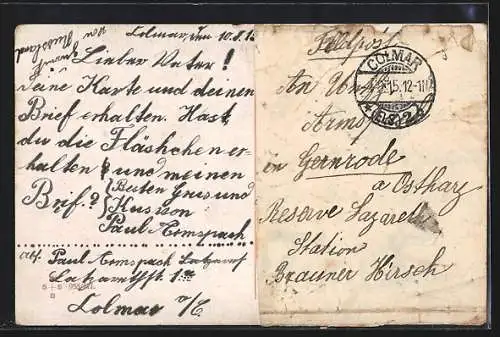 Colmar, den 10.8.15
Lieber Vater!
deine Karte und deinen
Brief erhalten. Hast
du die Fläshchen er-
halten und meinen
Brif? Besten Grus und
Kuss von
Paul Armspach
abs. Paul Armspach Lazarett
Lazarettst. 1
Colmar i/E
Feldpost
COLMAR
15.12-1
* (ELS.) 2 *
An Untffz.
Armsp
in Gernrode
a Ostharz
Reserve Lazarett
Station
Brauner Hirsch